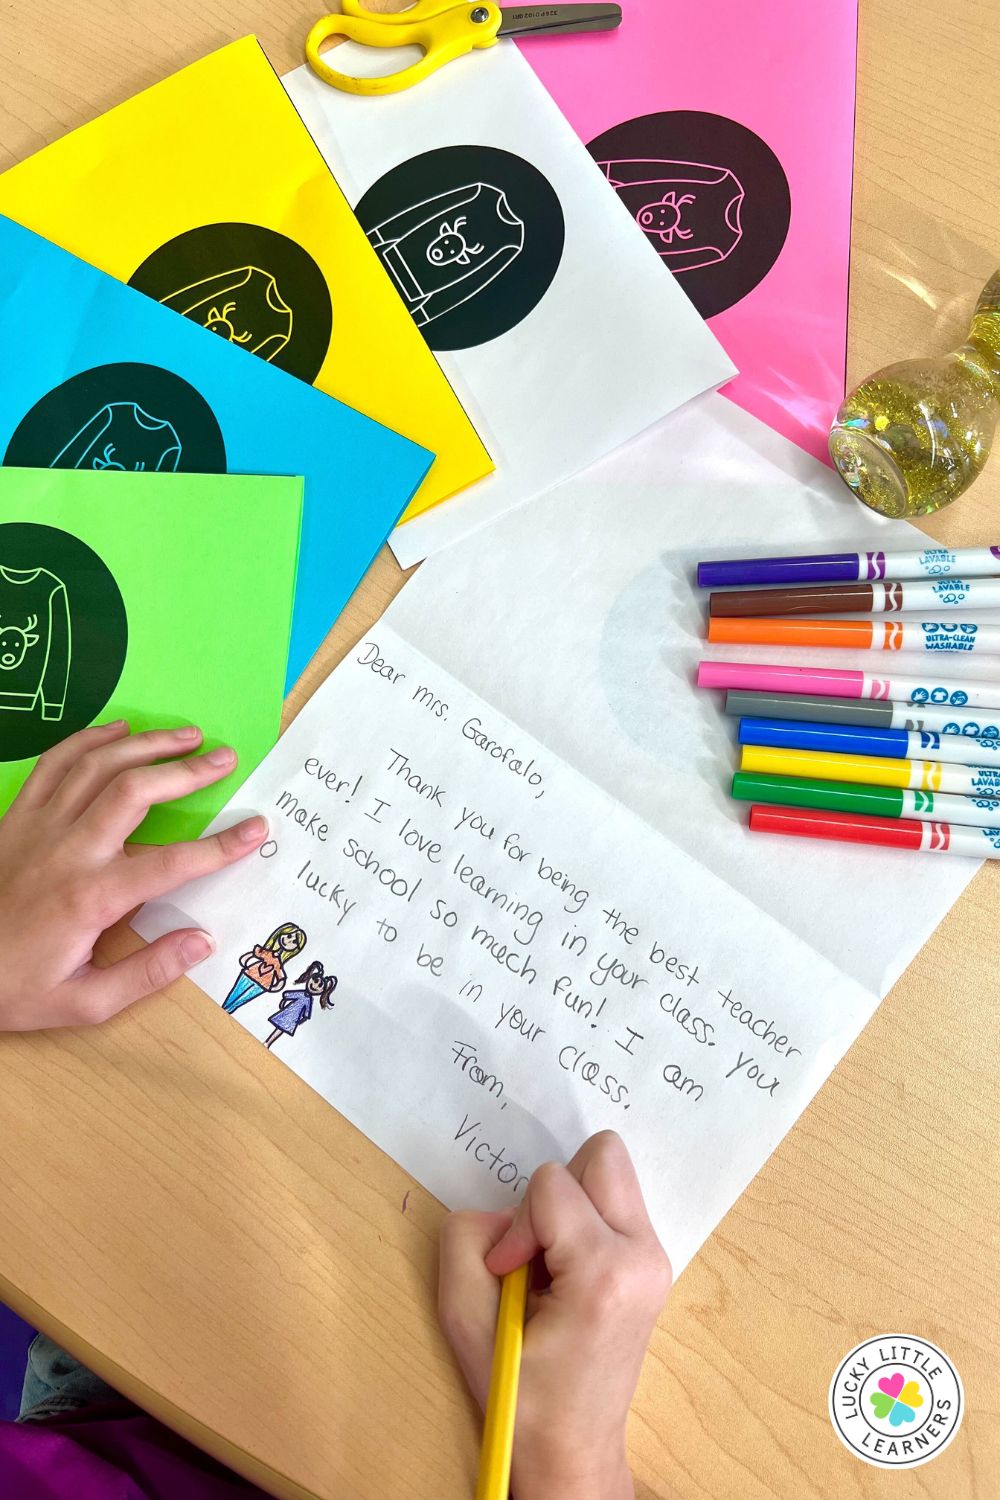 326P0102QRI
ULTRA
LAVABLE
LAVABLE
ULTRA-CLEAN
WASHABLE
ULTRA
LAVABLE
Dear mrs. Garofalo,
Thank you for being the best teacher
ever! I love learning in your class. You
make school so much fun! I am
o lucky to be in your class.
From,
Victor
LUCKY LITTLE
LEARNERS